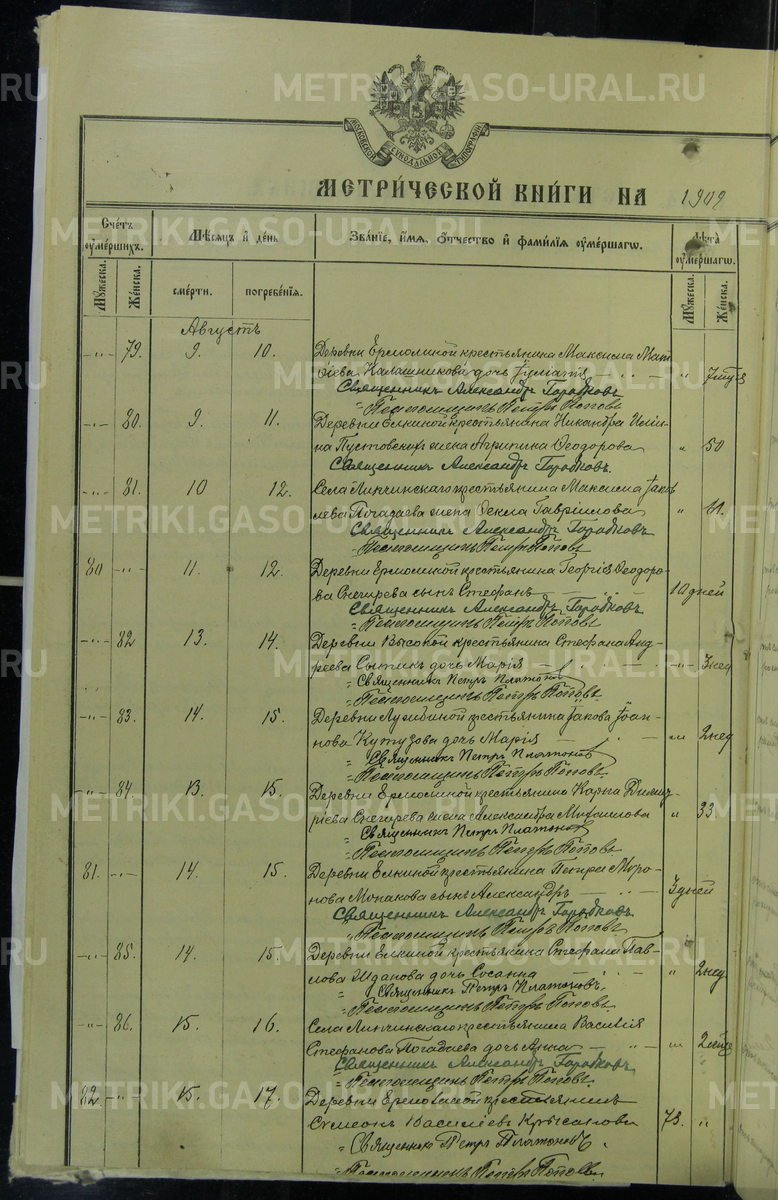 METRIKI.GASO-URAL.RU
МОСКОВСКОЙ СѴНОДАЛЬНОЙ ТИПОГРАФІИ
МЕТРИ́ЧЕСКОЙ КНИ́ГИ НА 1909
Сче́тъ ᲂу҆ме́ршихъ.
Мѣ́сяцъ и҆ де́нь
Зва́нїе, и҆́мя, ѻ҆́тчество и҆ фами́лїя ᲂу҆ме́ршагѡ.
Лѣ́та ᲂу҆ме́ршагѡ.
Мꙋ́жеска. Же́нска.
сме́рти. погребе́нїя.
Мꙋ́жеска. Же́нска.
Августъ
-"- 79. 9. 10. Деревни Ермолиной крестьянина Максима Мат
ѳіева Калашникова дочь "
Священникъ Александръ Городковъ
Псаломщикъ Петръ Поповъ
-"- 80. 9. 11. Деревни Елкиной крестьянина Никандра
на Пустовскихъ жена Агрипина Ѳеодорова " 50
Священникъ Александръ Городковъ.
-"- 81. 10 12. Села Липчинскаго крестьянина Максима Іаков
лева Погадаева жена Ѳекла Гавріилова " 61.
Священникъ Александръ Городковъ
Псаломщикъ Петръ Поповъ
80 -"- 11. 12. Деревни Ермолиной крестьянина Георгія Ѳеодоро-
ва Снегирева сынъ Стефанъ 10 дней
Священникъ Александръ Городковъ
Псаломщикъ Петръ Поповъ
-"- 82 13. 14. Деревни Высокой крестьянина Стефана Анд-
реева Сытикъ дочь Марія -"- 3 нед
Священникъ Петръ Платоновъ
Псаломщикъ Петръ Поповъ.
-"- 83. 14. 15. Деревни крестьянина Іакова Іоан-
нова Кутузова дочь Марія -"- 2 нед
Священникъ Петръ Платоновъ
Псаломщикъ Петръ Поповъ.
-"- 84. 13. 15. Деревни Ермолиной крестьянина Карпа Димит-
ріева Снегирева жена Александра Михаилова " 33
Священникъ Петръ Платоновъ
Псаломщикъ Петръ Поповъ.
81. -"- 14. 15. Деревни Елкиной крестьянина Петра Миро-
нова Мопакова сынъ Александръ 3 дней
Священникъ Александръ Городковъ
Псаломщикъ Петръ Поповъ
-"- 85. 14. 15. Деревни Елкиной крестьянина Стефана Пав-
лова Жданова дочь Сосанна " 2 нед
Священникъ Петръ Платоновъ.
Псаломщикъ Петръ Поповъ
-"- 86. 15. 16. Села Липчинскаго крестьянина Василія
Стефанова Погадаева дочь Анна -"-
Священникъ Александръ Городковъ
Псаломщикъ Петръ Поповъ
82 -"- 15. 17. Деревни крестьянинъ
Симеонъ Василіевъ 73. "
Священникъ Петръ Платоновъ.
Псаломщикъ Петръ Поповъ